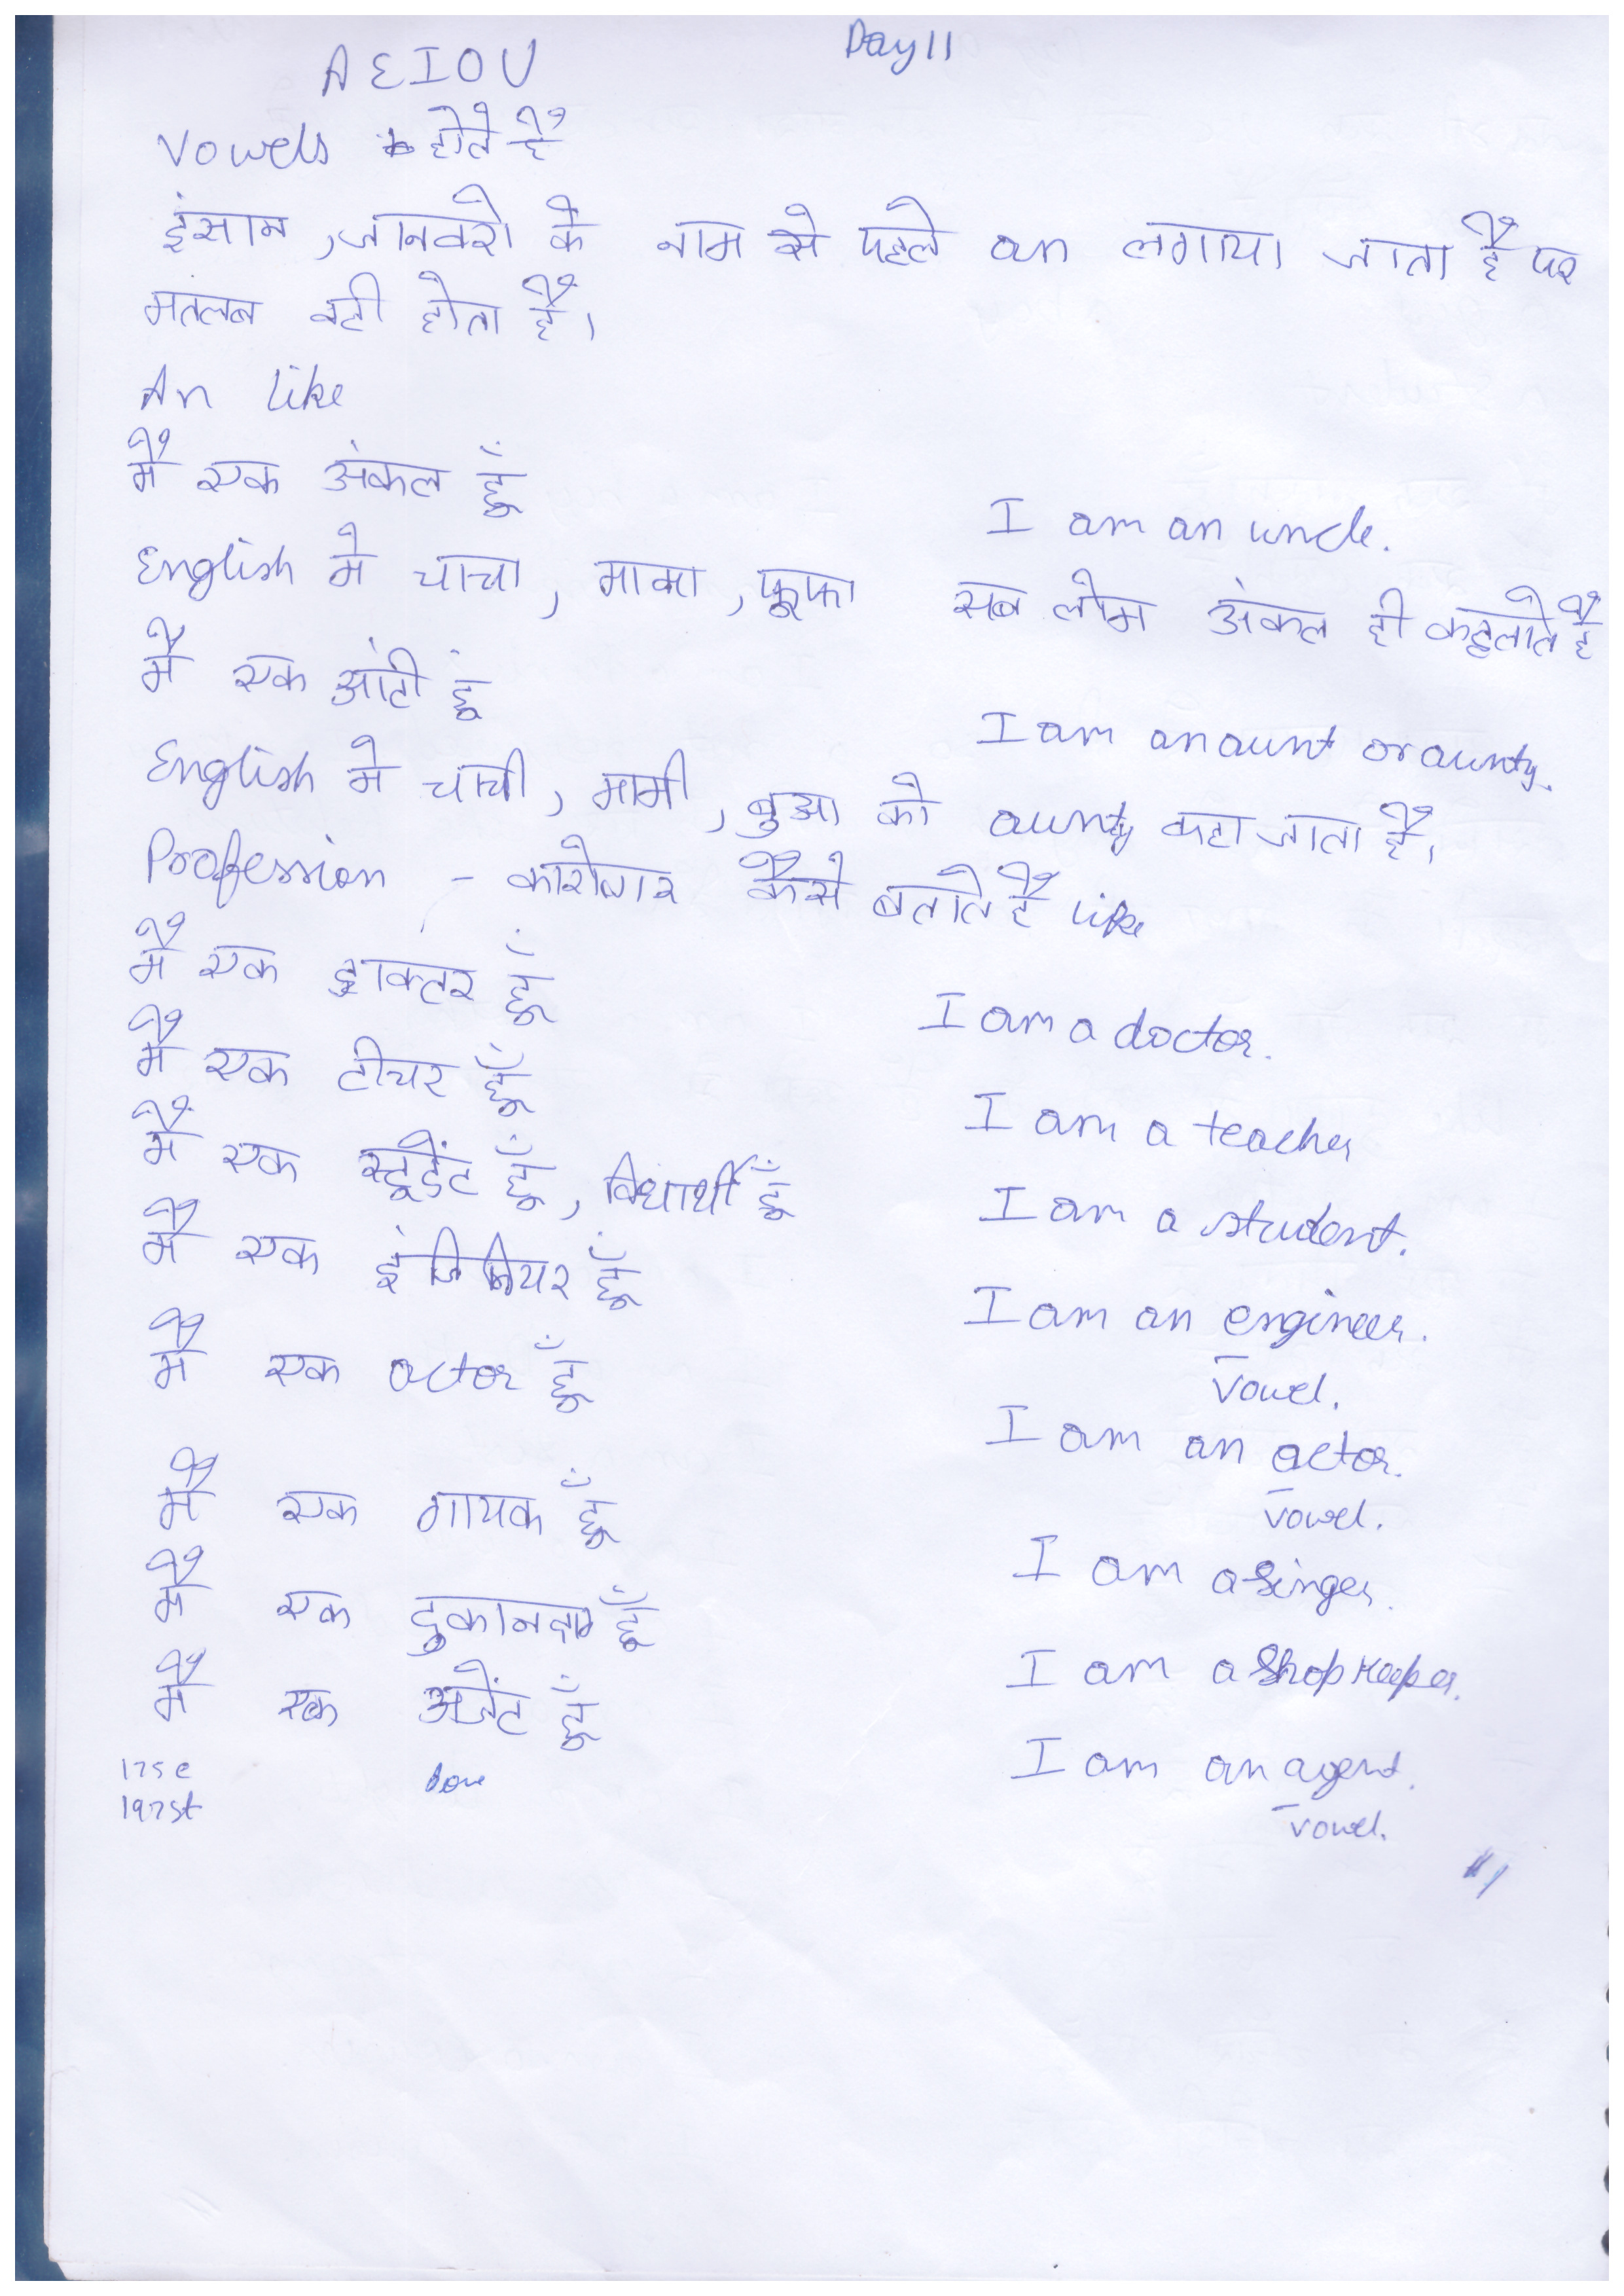 Day 11
A E I O U
Vowels होते है
इंसान, जानवरो के नाम से पहले an लगाया जाता है पर
मतलब वही होता है।
An like
मै एक अंकल हूँ
I am an uncle.
English मे चाचा, मामा, फूफा सब लोग अंकल ही कहलाते है
मै एक आंटी हुं
I am an aunt or aunty.
English मे चाची, मामी, बुआ को aunty कहा जाता है।
Profession - कारोबार कैसे बताते है like
मै एक डाक्टर हूँ
I am a doctor.
मै एक टीचर हूँ
I am a teacher
मै एक स्टूडेंट हूँ, विधार्थी हूँ
I am a student.
मै एक इंजिनियर हूँ
I am an engineer.
vowel.
मै एक actor हूँ
I am an actor.
vowel.
मै एक गायक हूँ
I am a singer.
मै एक दुकानदार हूँ
I am a shopkeeper.
मै एक अजेंट हूँ
I am an agent.
vowel.
175e
197st
done